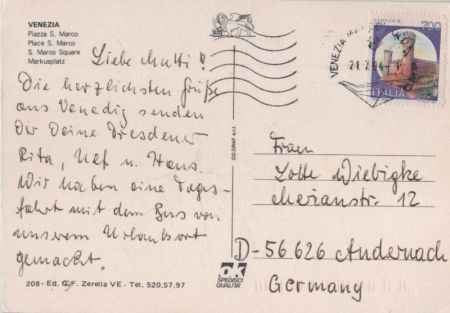 VENEZIA
Piazza S. Marco
Place S. Marco
S. Marco Square
Markusplatz
Liebe Mutti!
Die herzlichsten Grüße
aus Venedig senden
Dir Deine Dresdener
Rita, Ulf u. Hans.
Wir haben eine Tages-
fahrt mit dem Bus von
unserem Urlaubsort
gemacht.
208 - Ed. G.F. Zerella VE - Tel. 520.57.97
CO.GRAF s.r.l.
OK
SPEDISCI
QUALITA'
VENEZIA
700
ITALIA
Frau
Lotte Wiebigke
D-56626 Andernach
Germany